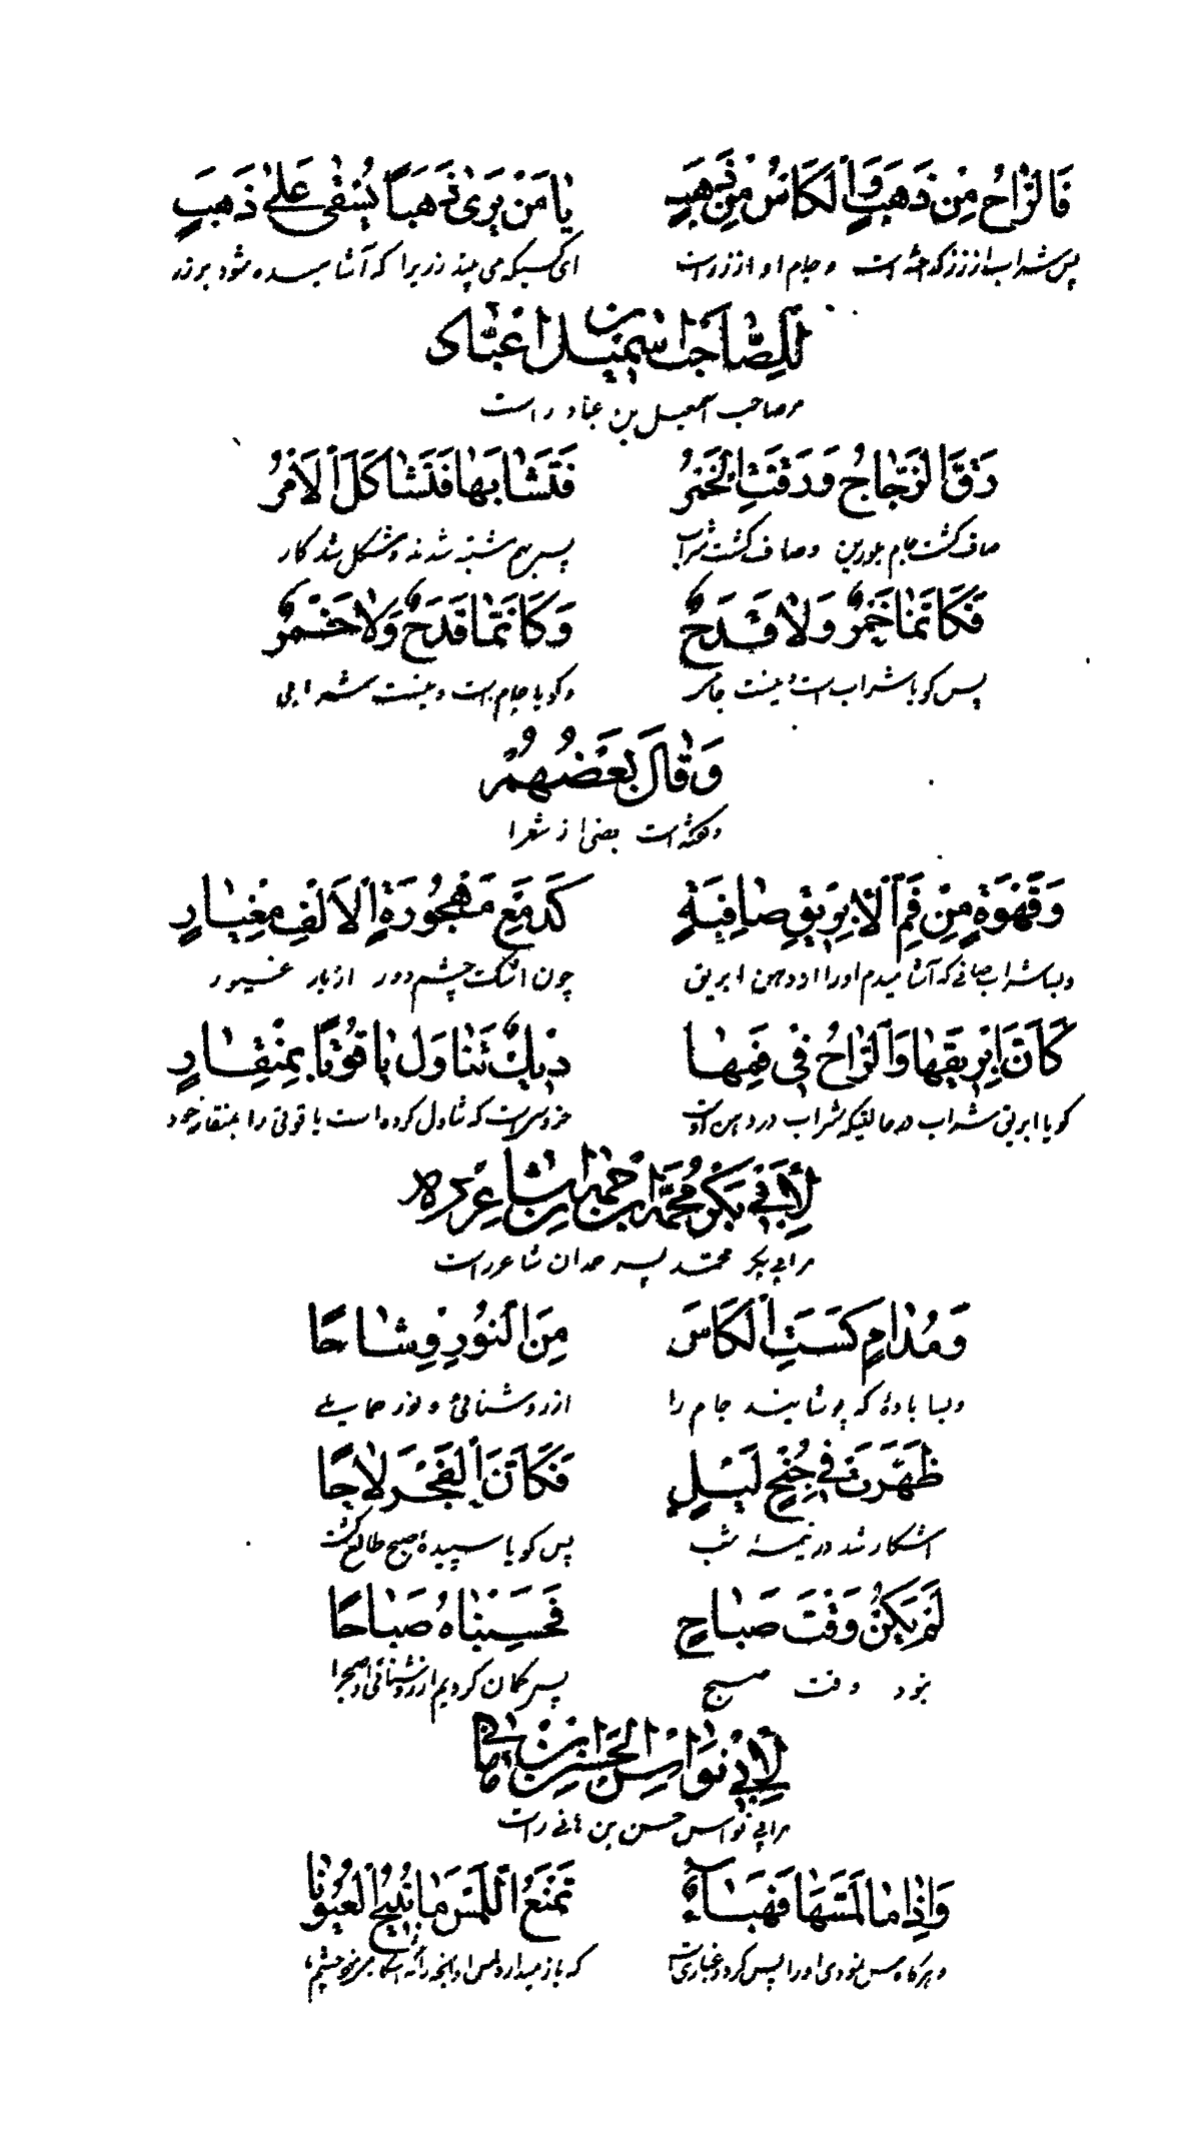 فَالرَّاحُ مِنْ ذَهَبٍ وَالْكَاسُ مِنْ ذَهَبٍ يَا مَنْ يَرَى ذَهَبًا يُسْقَى عَلَى ذَهَبٍ
پس شراب از زر گداخته است و جام او از زر است ای کسیکه می بیند زر را که آشامیده شود بر زر
لِلصَّاحِبِ اسْمٰعِيلَ ابْنِ عَبَّاد
مر صاحب اسمعیل بن عباد راست
رَقَّ الزُّجَاجُ وَرَقَّتِ الْخَمْرُ فَتَشَابَهَا فَتَشَاكَلَ الْأَمْرُ
صاف گشت جام بلورین و صاف گشت شراب پس بهم مشتبه شدند و مشکل شد کار
فَكَأَنَّمَا خَمْرٌ وَلَا قَدَحٌ وَكَأَنَّمَا قَدَحٌ وَلَا خَمْرٌ
پس گویا شراب است و نیست جامی و گویا جام است و نیست شرابی
وَقَالَ بَعْضُهُمْ
و گفته است بعضی از شعرا
وَقَهْوَةٍ مِنْ فَمِ الْإِبْرِيقِ صَافِيَةٍ كَدَمْعِ مَهْجُورَةِ الْأَلْفِ مِغْيَارٍ
و بسا شراب صافی که آشامیدم او را از دهن ابریق چون اشک چشم دور از یار غیور
كَأَنَّ إِبْرِيقَهَا وَالرَّاحُ فِي فَمِهَا دِيكٌ تَنَاوَلَ يَاقُوتًا بِمِنْقَارٍ
گویا ابریق شراب در حالتیکه شراب در دهن اوست خروسیست که تناول کرده است یاقوتی را بمنقار خود
لِأَبِي بَكْرٍ مُحَمَّدِ ابْنِ حَمْدَانَ شَاعِرٍ
مر ابی بکر محمد پسر حمدان شاعر راست
وَمُدَامٍ كَسَتِ الْكَاسَ مِنَ النُّورِ وِشَاحًا
و بسا بادهٔ که پوشانید جام را از روشنائی و نور حمایلی
ظَهَرَتْ فِي جُنْحِ لَيْلٍ فَكَأَنَّ الْفَجْرَ لَاحَا
آشکار شد در نیمهٔ شب پس گویا سپیدهٔ صبح طالع گشت
لَمْ يَكُنْ وَقْتَ صَبَاحٍ فَحَسِبْنَاهُ صَبَاحًا
نبود وقت صبح پس گمان کردیم از روشنائی او صبح را
لِأَبِي نُوَاسٍ الْحَسَنِ ابْنِ هَانِي
مر ابی نواس حسن بن هانی راست
وَإِذَا مَا لَمَسْتَهَا فَهَبَاءٌ تَمْنَعُ اللَّمْسَ مَا تُبِيحُ الْعُيُونَا
و هرگاه مس نمودی او را پس گرد و غباری است که باز میدارد لمس او آنچه را که